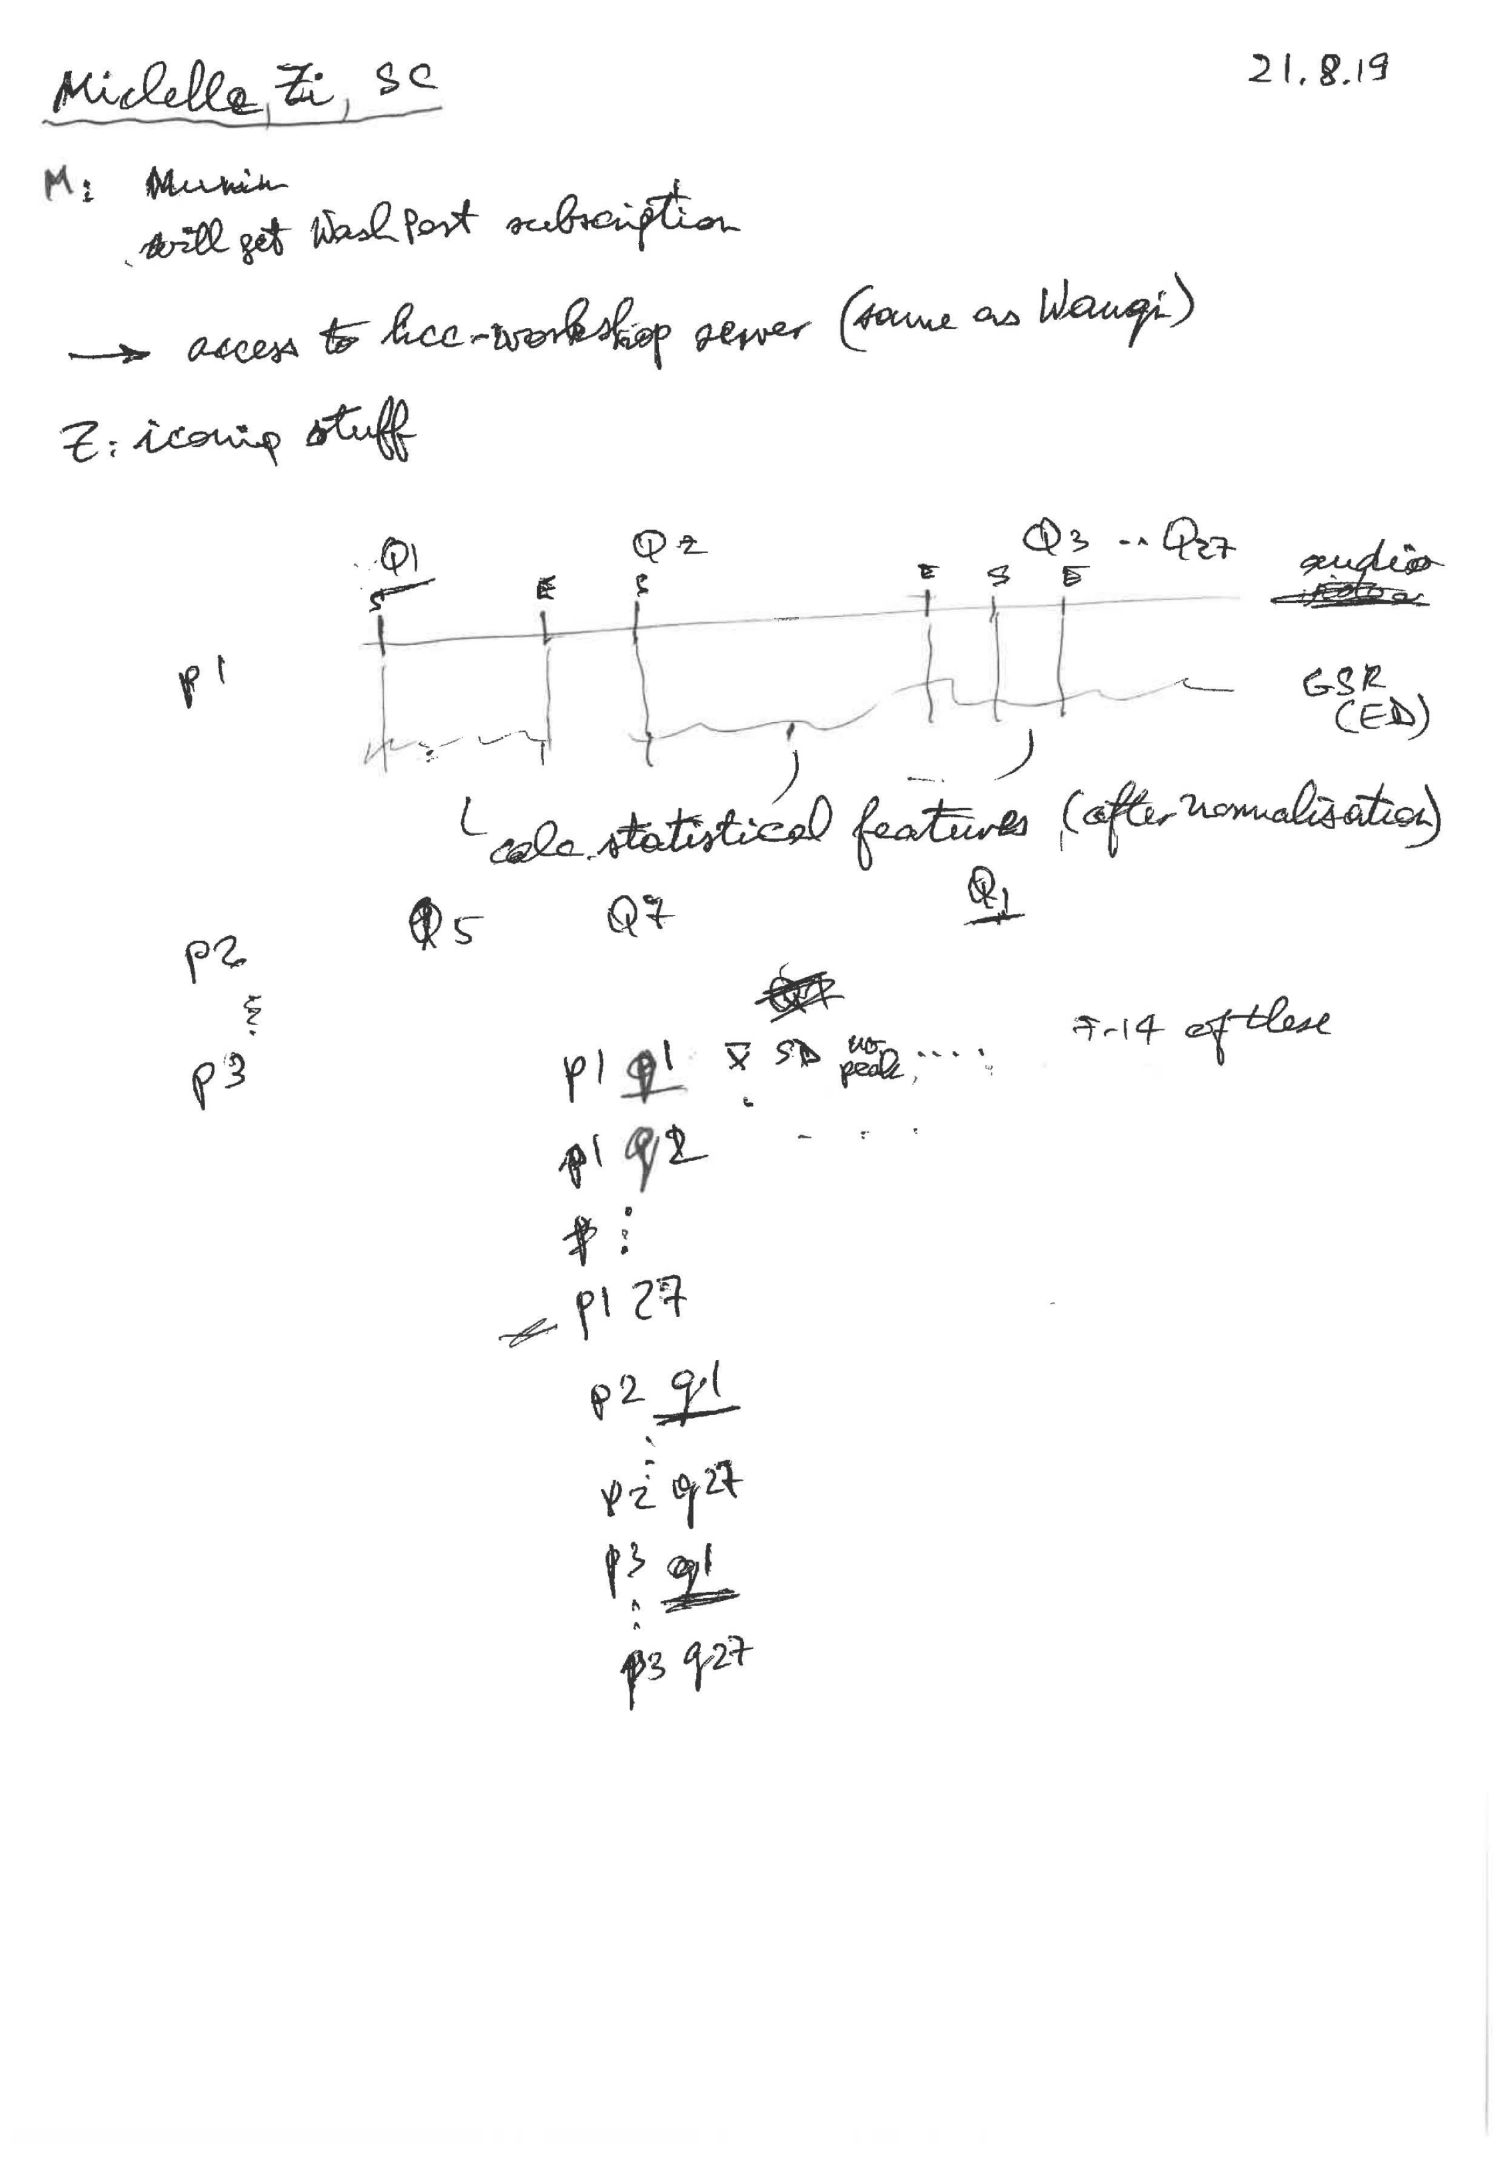 Michelle, Zi, SC
21.8.19
M:
will get Wash Post subscription
→ access to hcc-workshop server (same as Wanqi)
Z: iconip stuff
Q1 Q2 Q3 .. Q27
S E S E S E
audio
P1
GSR
(ED)
calc. statistical features (after normalisation)
P2 Q5 Q7 Q1
⋮
P3
7-14 of these
p1 q1 x̄ SD no. peak, ....
p1 q2 - . . .
⋮
p1 27
p2 q1
⋮
p2 q27
p3 q1
⋮
p3 q27